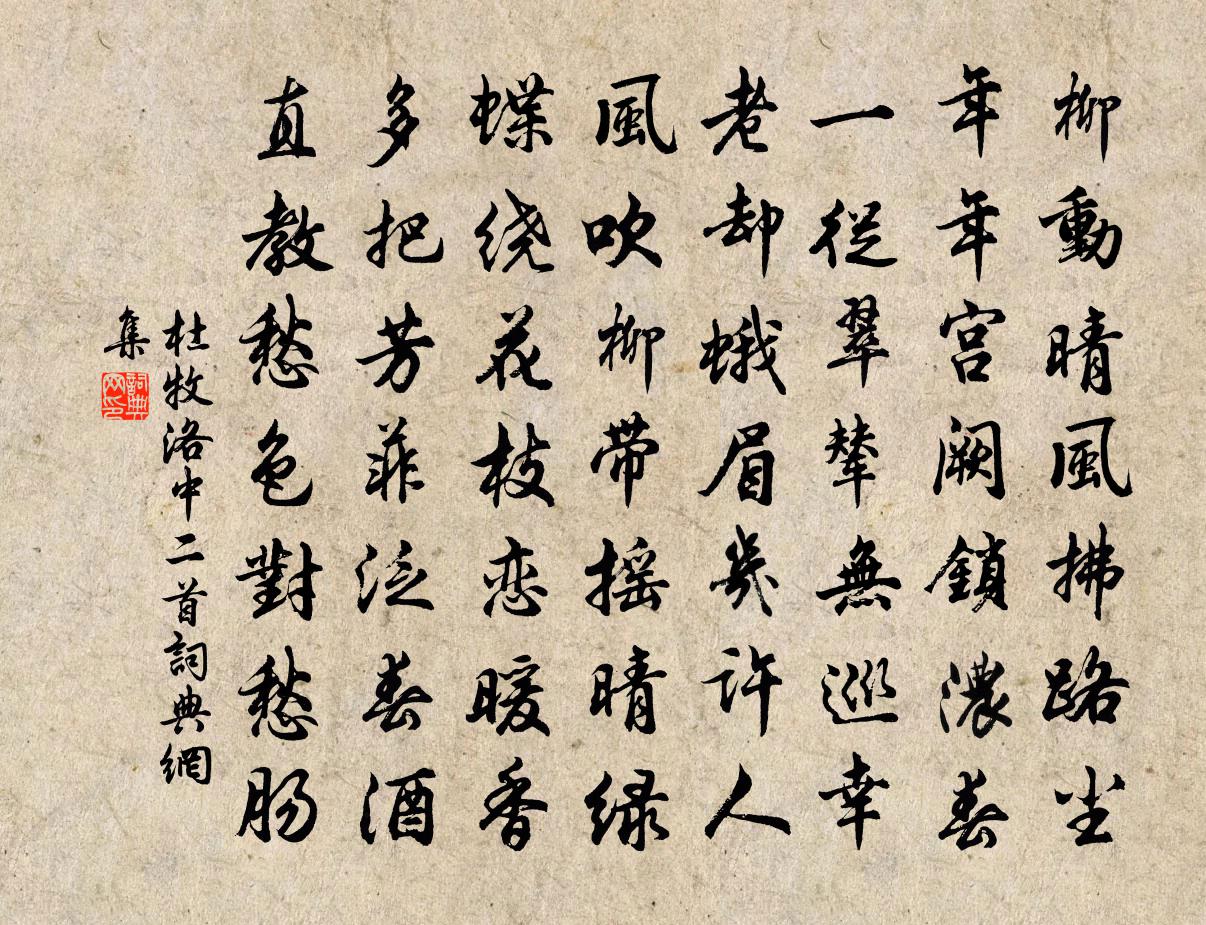 柳動晴風拂路尘
年年宫阙鎖濃春
一從翠輦無巡幸
老却蛾眉幾許人
風吹柳带摇晴绿
蝶绕花枝恋暖香
多把芳菲泛春酒
直教愁色對愁肠
杜牧洛中二首詞典網
集
詞典
网印